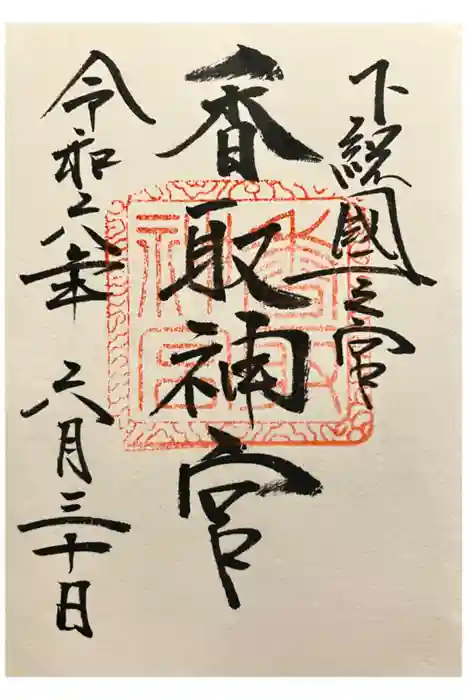 下総國一之宮
香取神宮
令和六年 六月三十日
香取
神宮